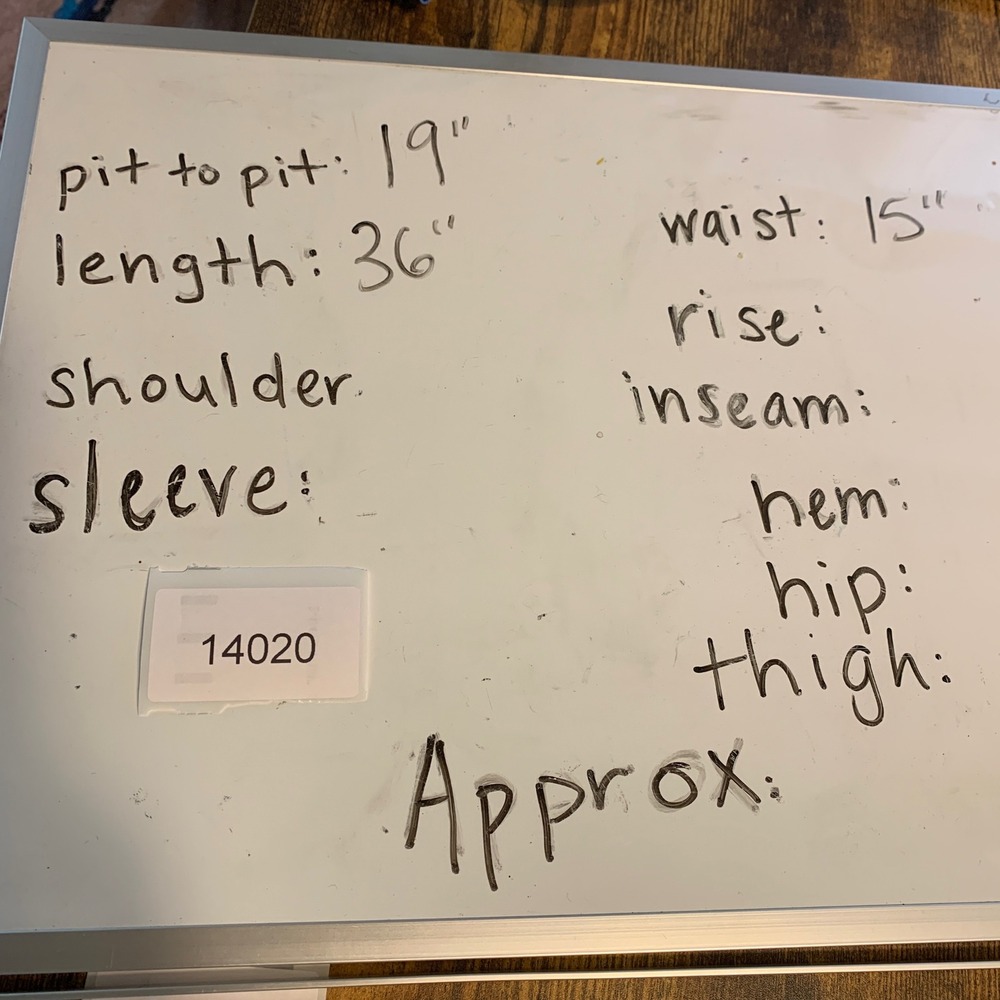 pit to pit: 19"
length: 36"
shoulder
sleeve:
14020
waist: 15"
rise:
inseam:
hem:
hip:
thigh:
Approx.